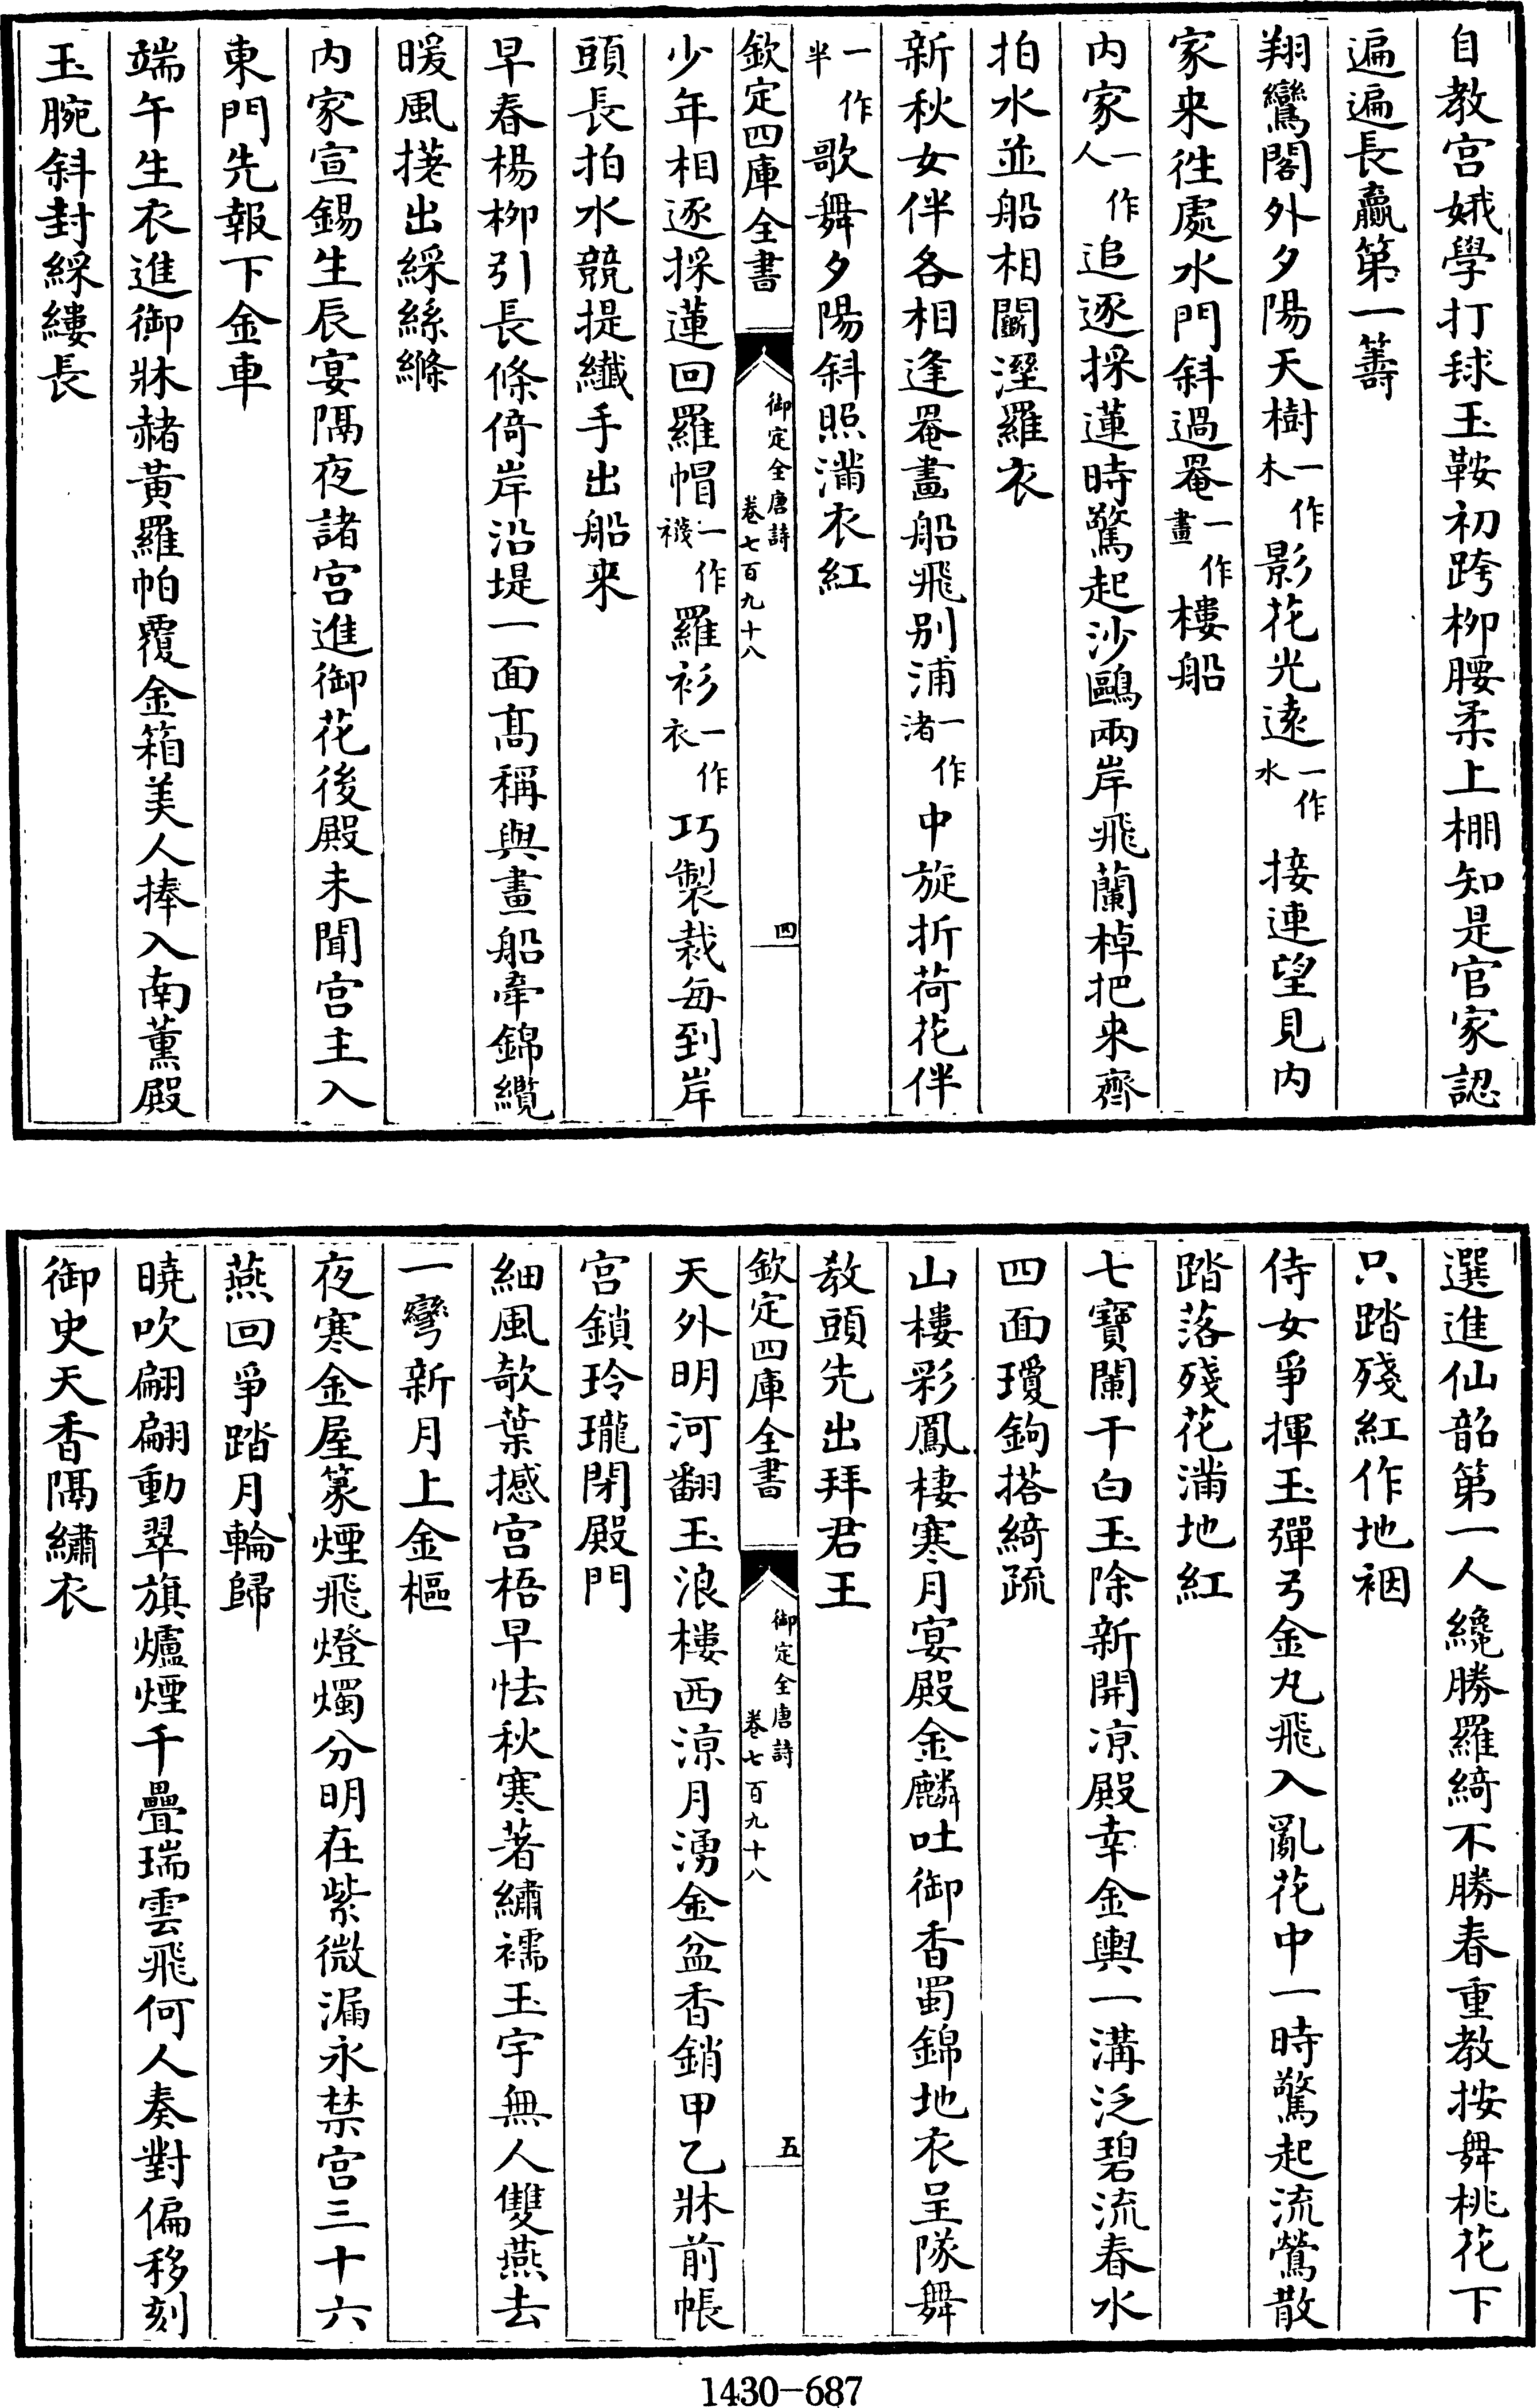 自教宫娥學打毬玉鞍初跨柳腰柔上棚知是官家認
遍遍長贏第一籌
翔鸞閣外夕陽天樹一作木影花光遠一作水接連望見内
家来往處水門斜過罨一作畫樓船
内家一作人追逐採蓮時驚起沙鷗兩岸飛蘭棹把来齊
拍水並船相鬬溼羅衣
新秋女伴各相逢罨畫船飛别浦一作渚中旋折荷花伴
一作半歌舞夕陽斜照滿衣紅
欽定四庫全書
御定全唐詩
卷七百九十八
四
少年相逐採蓮回羅帽一作襪羅衫一作衣巧製裁每到岸
頭長拍水競提纖手出船来
早春楊柳引長條倚岸沿堤一面髙稱與畫船牽錦纜
暖風搓出綵絲縧
内家宣錫生辰宴隔夜諸宫進御花後殿未聞宫主入
東門先報下金車
端午生衣進御牀赭黄羅帕覆金箱美人捧入南薫殿
玉腕斜封綵縷長
選進仙韶第一人纔勝羅綺不勝春重教按舞桃花下
只踏殘紅作地裀
侍女爭揮玉彈弓金丸飛入亂花中一時驚起流鶯散
踏落殘花滿地紅
七寶闌干白玉除新開凉殿幸金輿一溝泛碧流春水
四面瓊鉤搭綺疏
山樓彩鳳棲寒月宴殿金麟吐御香蜀錦地衣呈隊舞
教頭先出拜君王
欽定四庫全書
御定全唐詩
卷七百九十八
五
天外明河翻玉浪樓西涼月湧金盆香銷甲乙牀前帳
宫鎖玲瓏閉殿門
細風欹葉撼宫梧早怯秋寒著繡襦玉宇無人雙燕去
一彎新月上金樞
夜寒金屋篆煙飛燈燭分明在紫微漏永禁宫三十六
燕回爭踏月輪歸
曉吹翩翩動翠旗爐煙千疊瑞雲飛何人奏對偏移刻
御史天香隔繡衣
1430-687